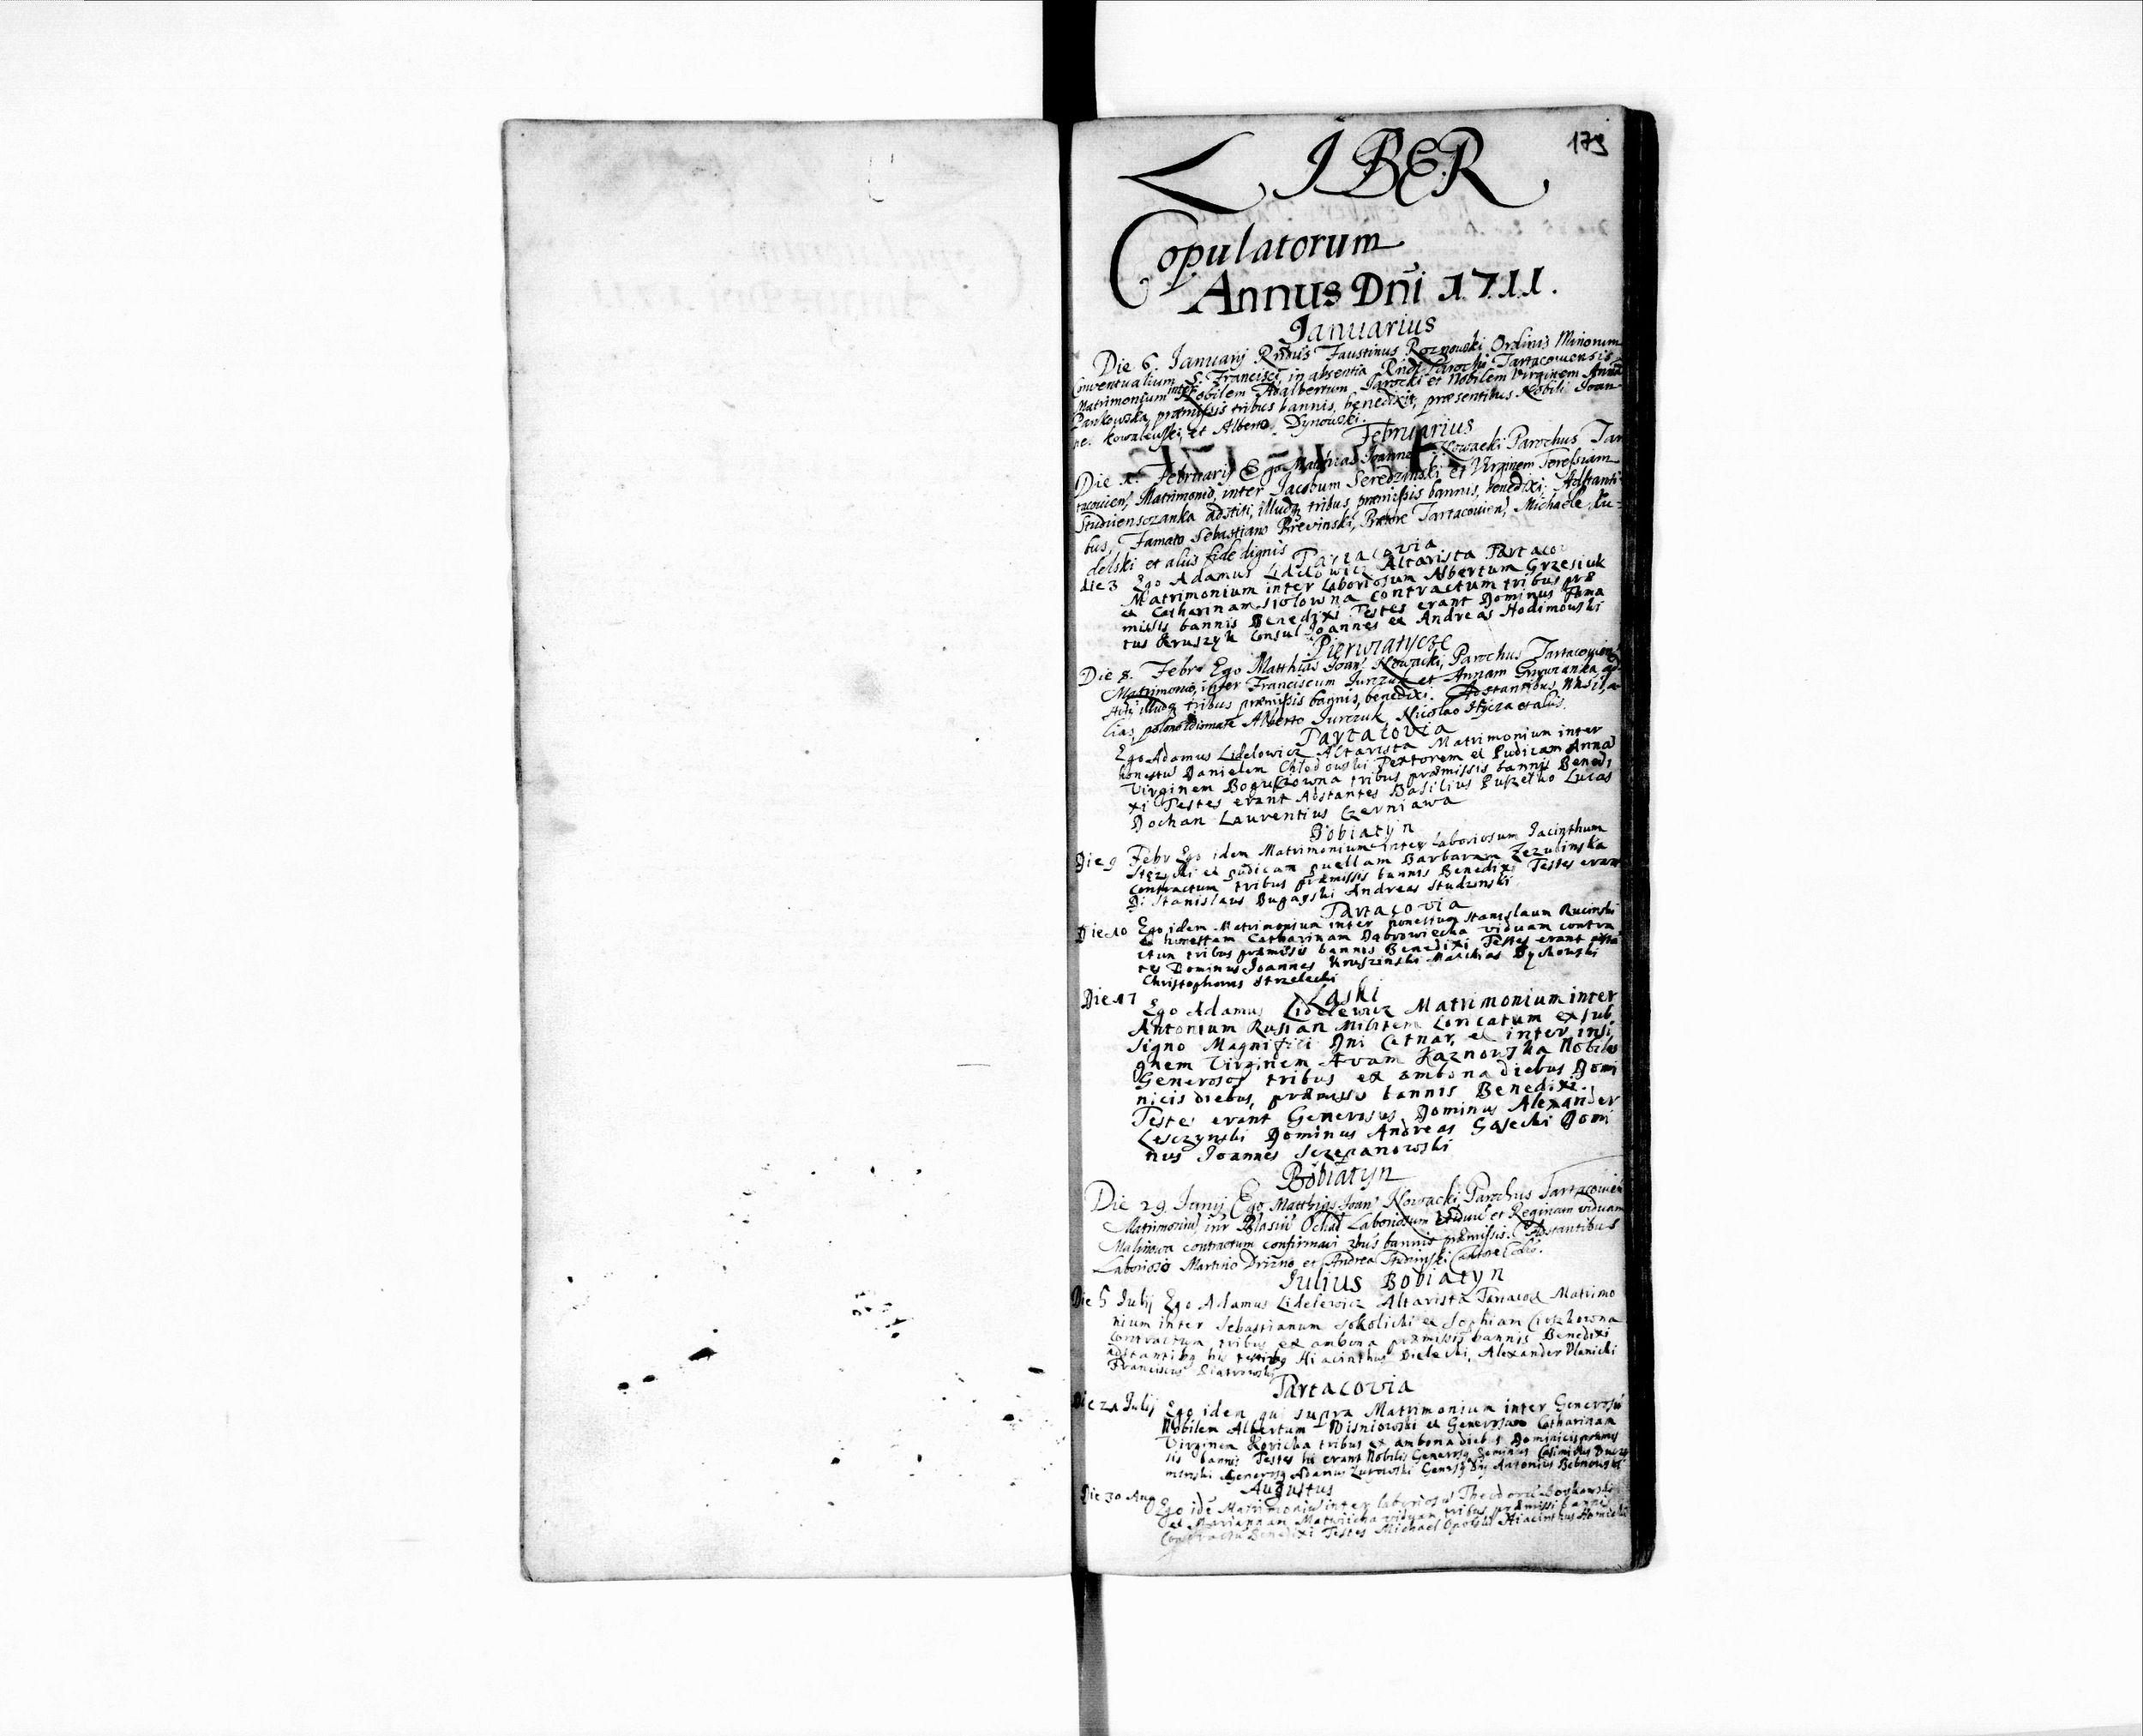 179
LIBER
Copulatorum
Annus Dni 1711.
Januarius
Die 6. Januarij Rndus Faustinus Roznowski Ordinis Minorum
Conventualium S. Francisci, in absentia Rndi Parochi Tartacoviensis
Matrimonium inter Nobilem Adalbertum Jarocki et Nobilem Virginem Annam
Pankowska, præmissis tribus bannis, benedixit, præsentibus Nobili Joan-
ne. Kowalewski, et Alberto Dynowski.
Februarius
Die Februarij Ego Matthias Joannes Nowacki Parochus Tar
tacovien, Matrimonio, inter Jacobum Seredzinski et Virginem Teressiam
adstiti, illudq tribus præmissis bannis, benedixi. Adstanti-
bus, Famato Sebastiano Brevinski, Tartacovien, Michaele Ku-
delski et aliis fide dignis
Tartacovia
die 3 Ego Adamus Lidelowicz Altarista Tartaco
Matrimonium inter Laboriosum Albertum Grzesiuk
et Catharinam contractum tribus præ
missis bannis Benedixi Testes erant Dominus Fama
tus Kruszyk Consul Joannes et Andreas Hodimowski
Pierwiatycze
Die 8. Febr Ego Matthias Joan Nowacki, Parochus Tartacovien
Matrimonio, inter Franciscum Jurczuk et Annam
illudq tribus præmissis bannis, benedixi. Adstantibus
Alberto Jurczuk, Nicolao et aliis.
Tartacovia
Ego Adamus Lidelowicz Altarista Matrimonium inter
honestus Danielem Chlodowski et Pudicam Anna
Virginem tribus præmissis bannis Benedi
xi Testes erant Adstantes Basilius Lucas
Dochan Laurentius Czerniawa
Bobiatyn
Die 9 Febr Ego idem Matrimonium inter Laboriosum Jacinthum
et pudicam puellam Barbaram
Contractum tribus præmissis bannis Benedixi Testes erant
D: Stanislaus Bugayski Andreas Studzinski
Tartacovia
Die 10 Ego idem Matrimonium inter honestum Stanislaum Rucinski
et honestam Catharinam Dabrowiecka viduam contra
ctum tribus præmissis bannis Benedixi Testes erant
tes Dominus Joannes Kruszinski Mathias Dychowski
Christophorus Strzelecki
Laski
Die 17 Ego Adamus Lidelewicz Matrimonium inter
Antonium Rusian Militem Loricatum ex sub
signo Magnifici Dni Cetnar, et inter, insi
gnem Virginem Avam Kaznowska Nobiles
Generosos tribus ex ambona diebus Domi
nicis diebus, præmissis bannis Benedixi.
Testes erant Generosus Dominus Alexander
Lesczynski Dominus Andreas Gasecki Domi
nus Joannes Sczepanowski
Bobiatyn
Die 29 Junij Ego Matthias Joan Nowacki, Parochus Tartacovien
Matrimoniu inr Blasiu Laboriosum et Reginam viduam
Malinowa contractum confirmavi 3bus bannis præmissis. Adstantibus
Laborioso Martino et Andrea
Julius Bobiatyn
Die 5 Julij Ego Adamus Lidelewicz Altarista Tartacov Matrimo
nium inter Sebastianum Sokolicki et Sophiam
Contractum tribus ex ambona præmissis bannis Benedixi
adstantibq his testibq Hiacinthus Bielecki, Alexander Planicki
Franciscus Piatrowski
Tartacovia
Die 21 Julij Ego idem qui supra Matrimonium inter Generosu
Nobilem Albertum Wisniowski et Generosam Catharinam
Virginem tribus ex ambona diebus Dominicis præmis
sis bannis Testes hi erant Nobilis Generosq Dominus Casimirus
Generosq Adamus Zurowski Generosq Dns Antonius
Augustus
Die 30 Aug Ego ide Matrimoniu inter laboriosu Theodoru
et Mariannam viduam tribus præmissis bannis
Contractu Benedixi Testes Michael Opolski Hiacinthus